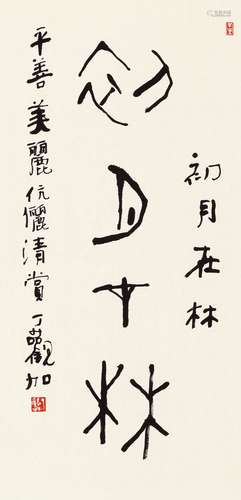 初月在林
初月在林
平善美麗伉儷清賞 丁觀加